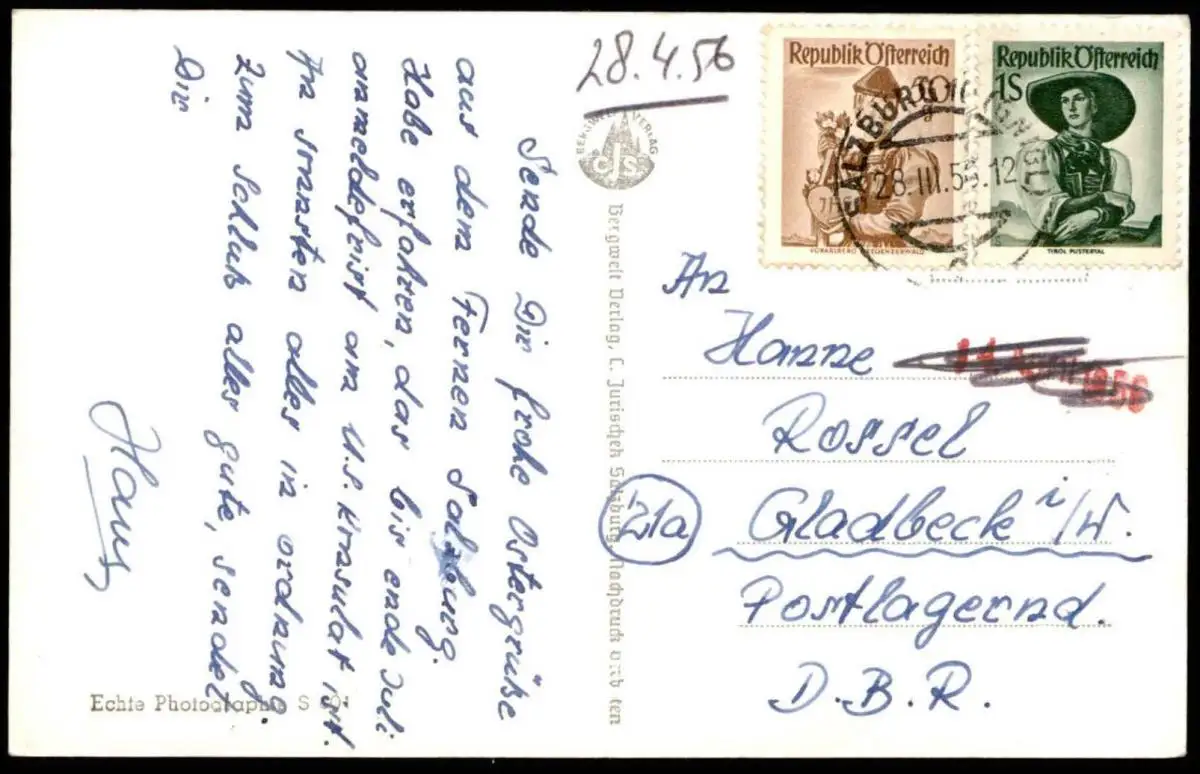 28.4.56
Sende Dir frohe Ostergrüße
aus dem Fernen Salzburg.
Habe erfahren, das bis ende Juli
anmeldefrist am U.S. Krasulat ist.
sonnsten alles in ordnung.
Zum Schluß alles gute, sendet
Dir
Hans
Republik Österreich
VORARLBERG BREGENZERWALD
Republik Österreich
1S
TIROL PUSTERTAL
SALZBURG
28.III.56.12
BERGWELT VERLAG
CJS
Bergwelt Verlag, C. Jurischek Salzburg, Nachdruck verboten
An
Hanne
Rossel
21a
Gladbeck i/W.
Postlagernd.
D.B.R.
Echte Photographie S